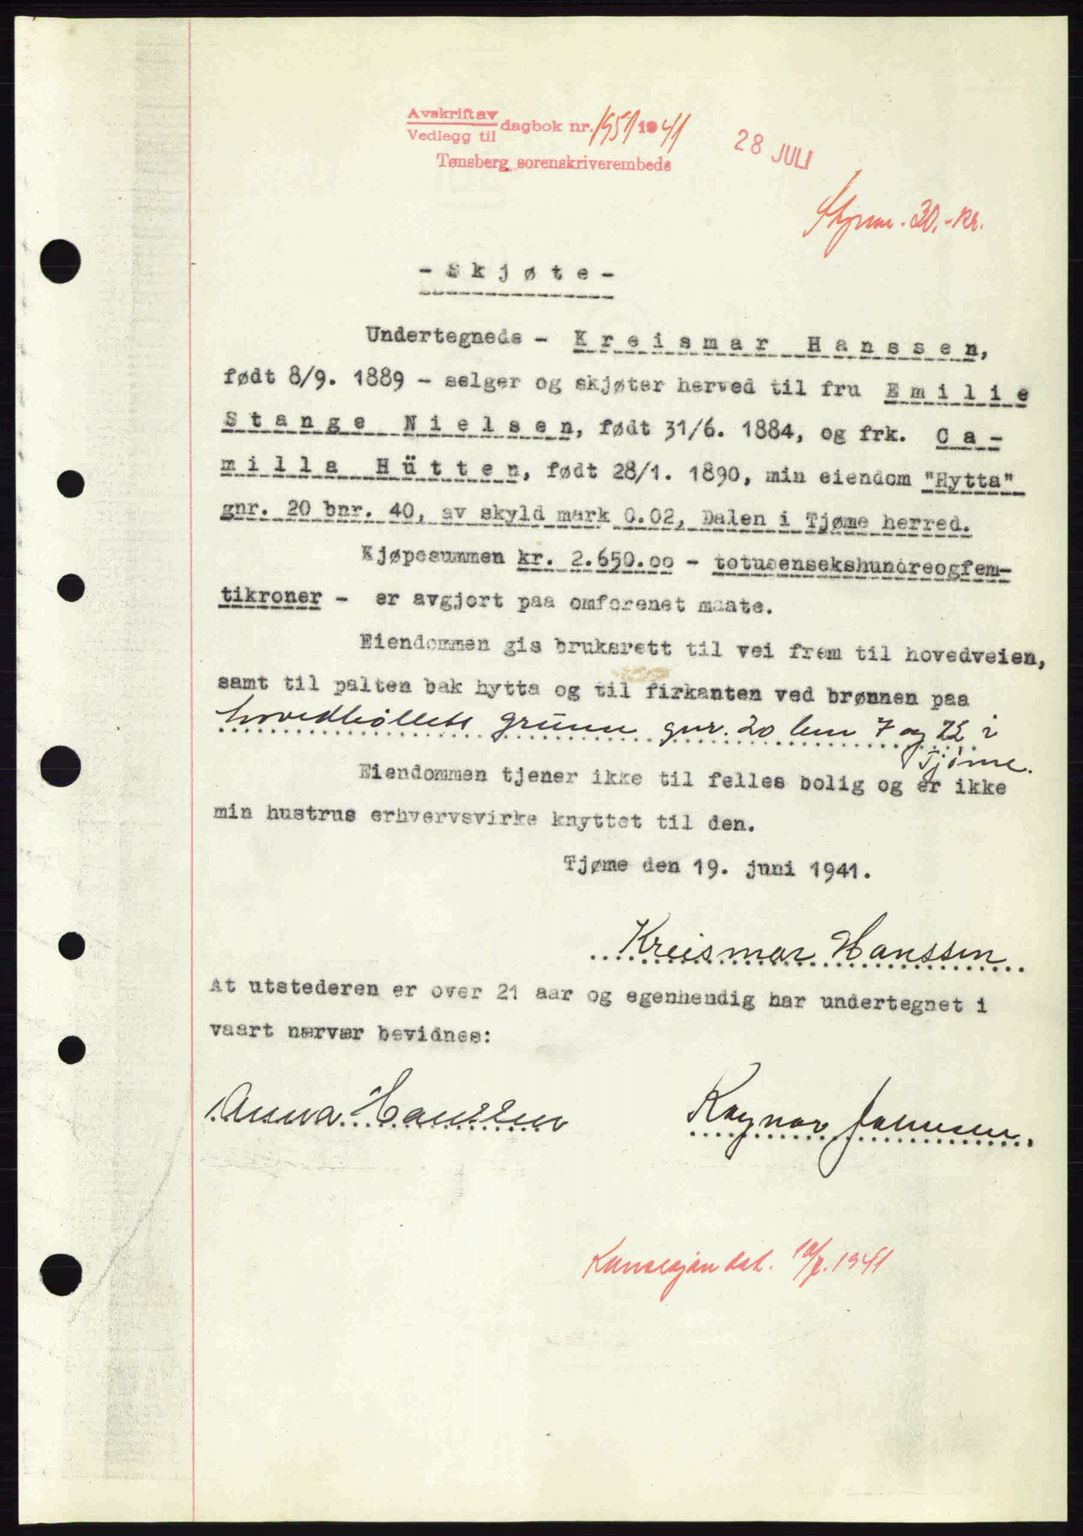 Avskrift av
Vedlegg til dagbok nr. 1951/1941
Tønsberg sorenskriverembede
28 JULI
30.-kr.
- Skjøte -
Undertegnede - Kreismar Hanssen,
født 8/9. 1889 - selger og skjøter herved til fru Emilie
Stange Nielsen, født 31/6. 1884, og frk. Ca-
milla Hütten, født 28/1. 1890, min eiendom "Hytta"
gnr. 20 bnr. 40, av skyld mark 0.02, Dalen i Tjøme herred.
Kjøpesummen kr. 2.650.00 - totusensekshundreogfem-
tikroner - er avgjort paa omforenet maate.
Eiendommen gis bruksrett til vei frem til hovedveien,
samt til palten bak hytta og til firkanten ved brønnen paa
hovedbøllets grunn gnr. 20 bnr 7 og 22 i
Tjøme.
Eiendommen tjener ikke til felles bolig og er ikke
min hustrus erhvervsvirke knyttet til den.
Tjøme den 19. juni 1941.
Kreismar Hanssen
At utstederen er over 21 aar og egenhendig har undertegnet i
vaart nærvær bevidnes:
Anna Hanssen Ragnar Johnsen.
1941